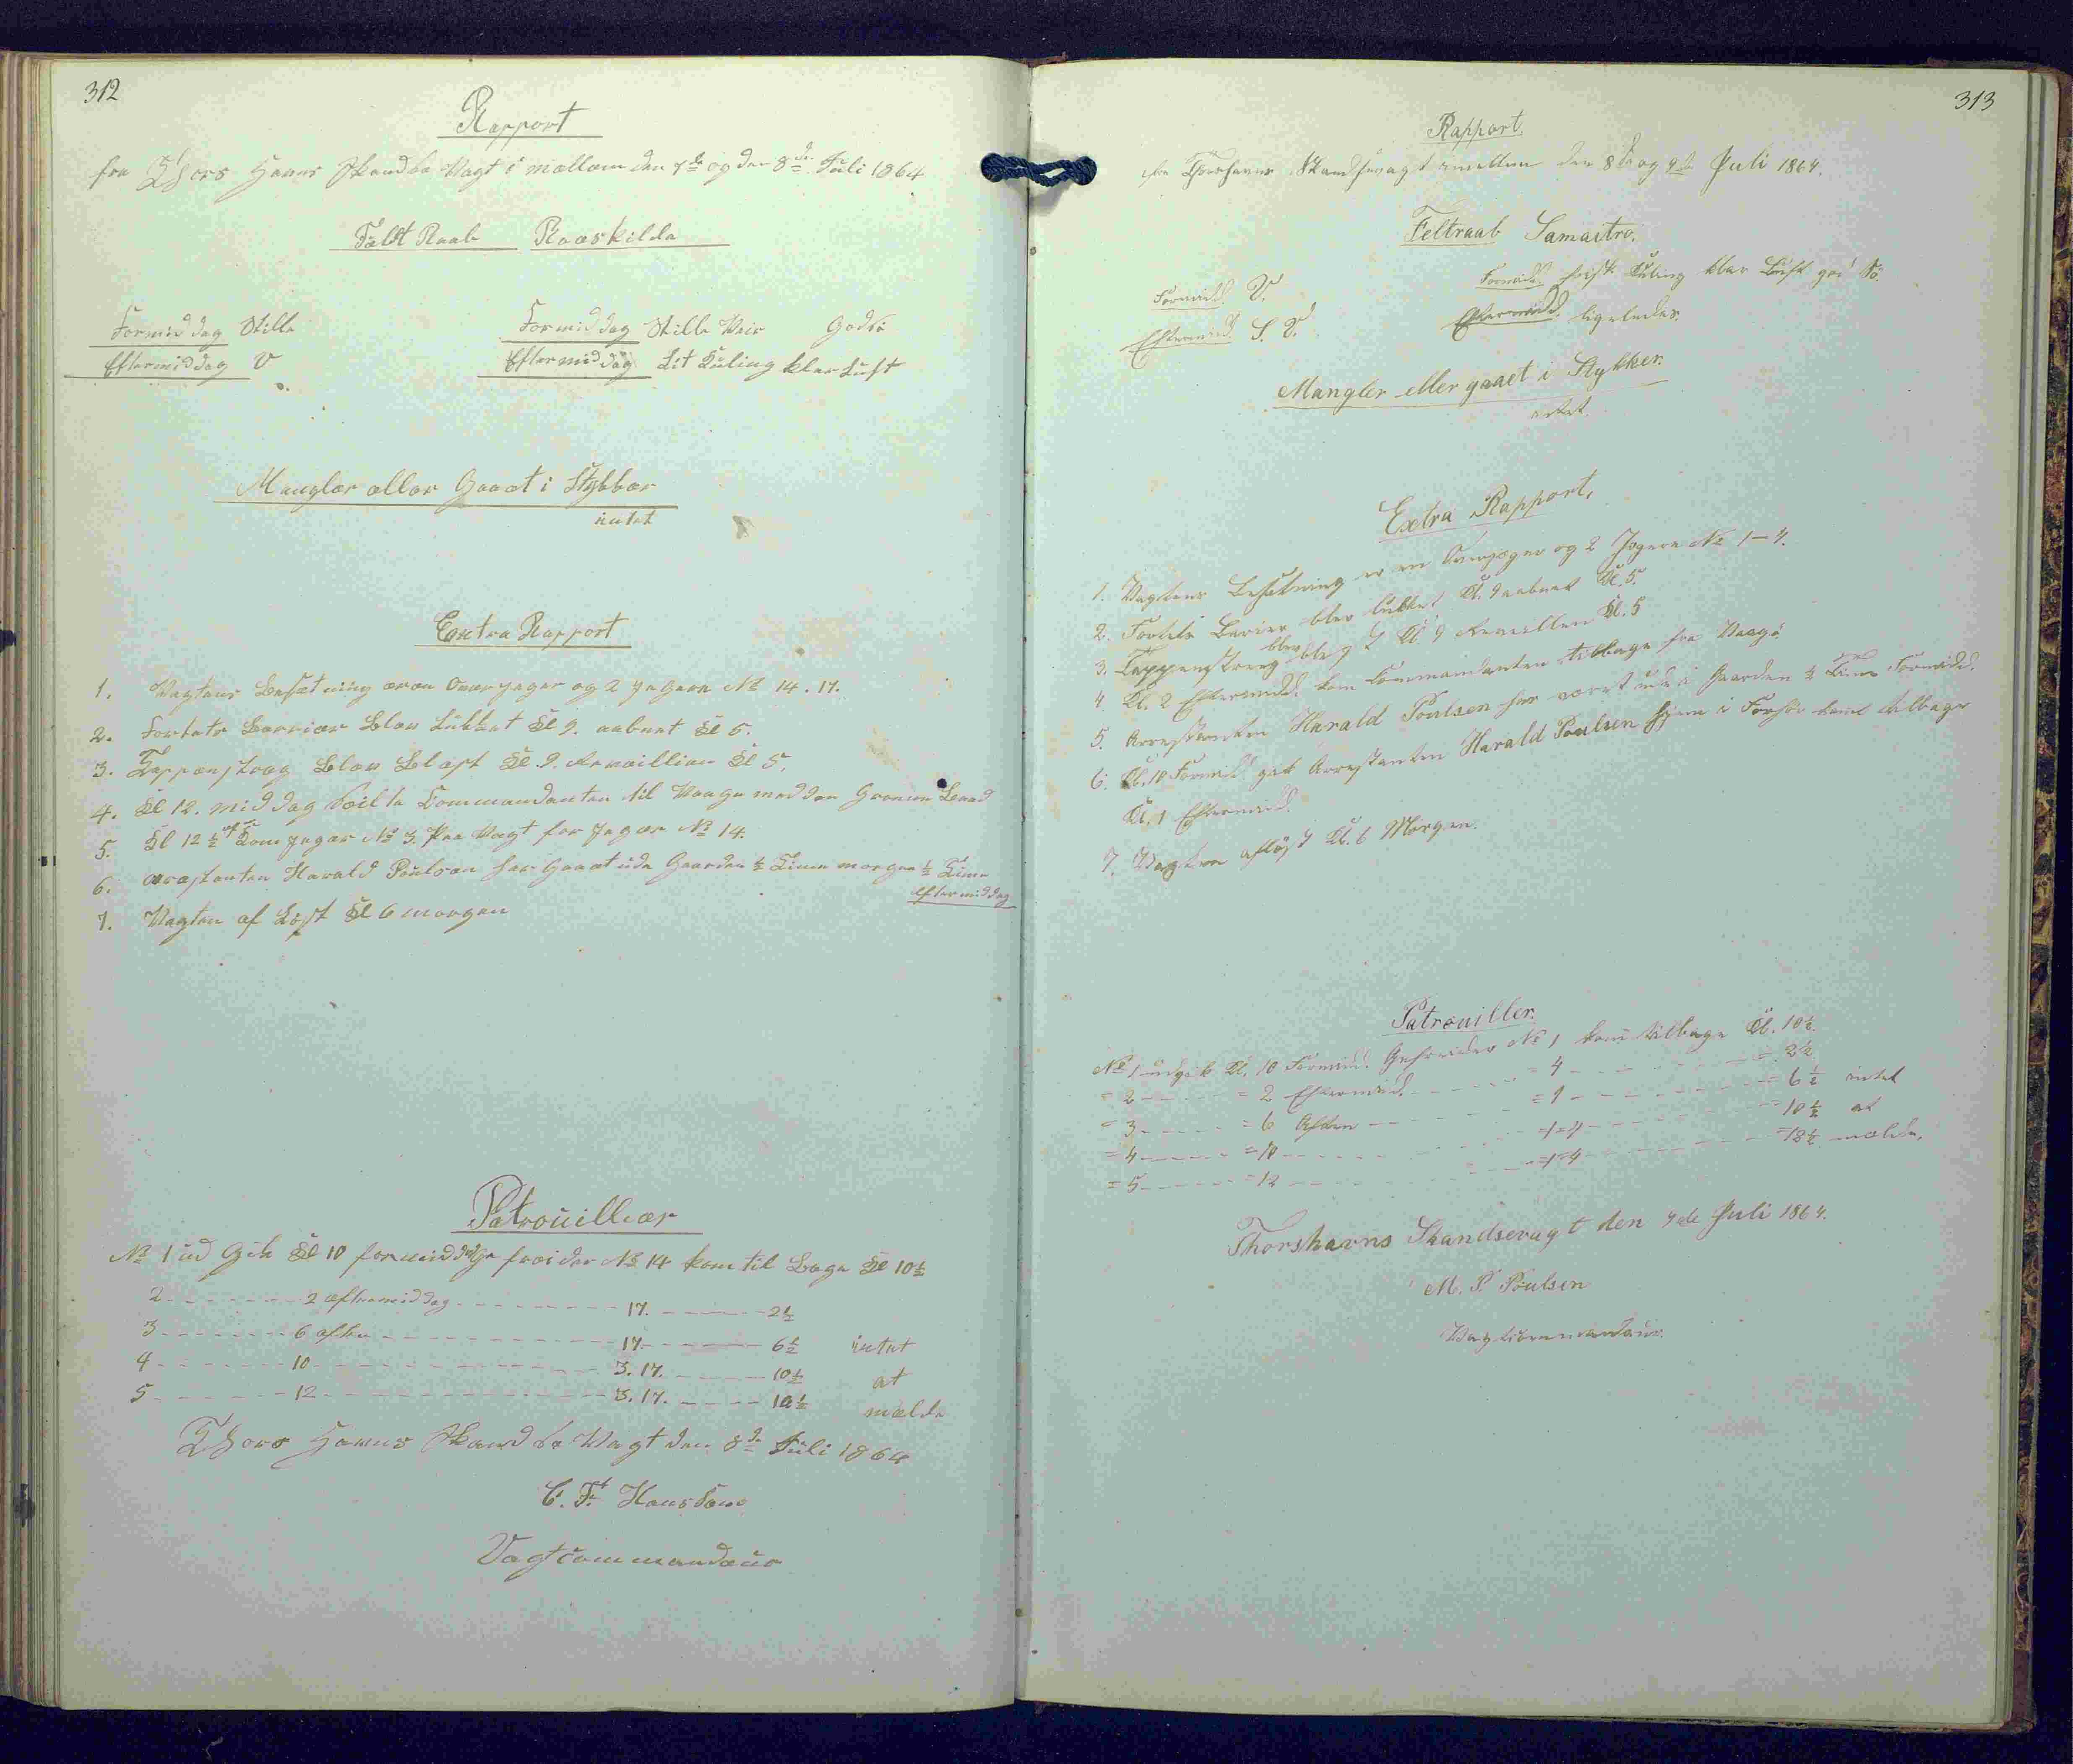 312
Rapport
fra Thors Havns Skandse Vagt i mellem den 7de og den 8de Juli 1864
Feldt Raab Roeskilde
Formiddag Stille Formiddag Stille Veir Godt
Eftermiddag V Eftermiddag Lit Kuling klar Luft
Mangler eller Gaaet i Stykker
intet
Extra Rapport
1. Vagtens Besætning er en Overjæger og 2 Jægere No 14. 17.
2. Fortets Barrier blev lukket Kl 9. aabnet Kl 5.
3. Tappenstræg blev blæst Kl. 9. Reveillien Kl 5.
4. Kl 12. middag Seilte Commandanten til Vaage med den Grønne Baad
5. Kl 12 ½ Kom Jæger No 3. paa Vagt for Jæger No 14.
6. arestanten Harald Poulsen har Gaaet ude Gaarden ½ Time morgen ½ Time
Eftermiddag
7. Vagten af Løst Kl 6 morgen
Patrouiller
No 1 ud Gik Kl 10 formiddag Gefreider No 14 kom til Bage Kl 10½
2 - - - 2 eftermiddag - - - 17. - - - 2½
3 - - - 6 aften - - - 17. - - - 6½ intet
4 - - - 10 - - - 3. 17. - - - 10½ at
5 - - - 12 - - - 3. 17. - - - 12½ melde
Thors Havns Skandse Vagt den 8de Juli 1864
C. F. Hansen
Vagtcommandeur
313
Rapport.
fra Thorshavns Skandsevagt imellem den 8de og 9de Juli 1864.
Feltraab Samastro.
Formidd. V. Formidd. frisk Kuling klar Luft god Sø.
Eftermidd. S. V. Eftermidd. ligeledes.
Mangler eller gaaet i Stykker.
intet
Extra Rapport.
1. Vagtens Besætning er en Overjæger og 2 Jægere No 1-4.
2. Fortets Barier blev lukket Kl. 9 aabnet Kl. 5.
3. Tappenstreg blev blæst Kl. 9 Reveillen Kl. 5
4. Kl. 2 Eftermidd. kom Commandanten tilbage fra Vaagø
5. Arrestanten Harald Poulsen har været ude i Gaarden ½ Time Formidd.
6. Kl. 10 Formidd. gik Arrestanten Harald Poulsen hjem i Forhør kom tilbage
Kl. 1 Eftermidd.
7. Vagten afløst Kl. 6 Morgen.
Patrouiller.
No 1 udgik Kl. 10 Formidd. Gefreider No 1 kom tilbage Kl. 10½.
= 2 - - - = 2 Eftermidd. - - - = 4 - - - = 2½
= 3 - - - = 6 Aften - - - = 1 - - - = 6½ intet
= 4 - - - = 10 - - - = 1=4 - - - = 10½ at
= 5 - - - = 12 - - - = 1=4 - - - = 12½ melde.
Thorshavns Skandsevagt den 9de Juli 1864.
M. P. Poulsen
Vagtcommandeur.